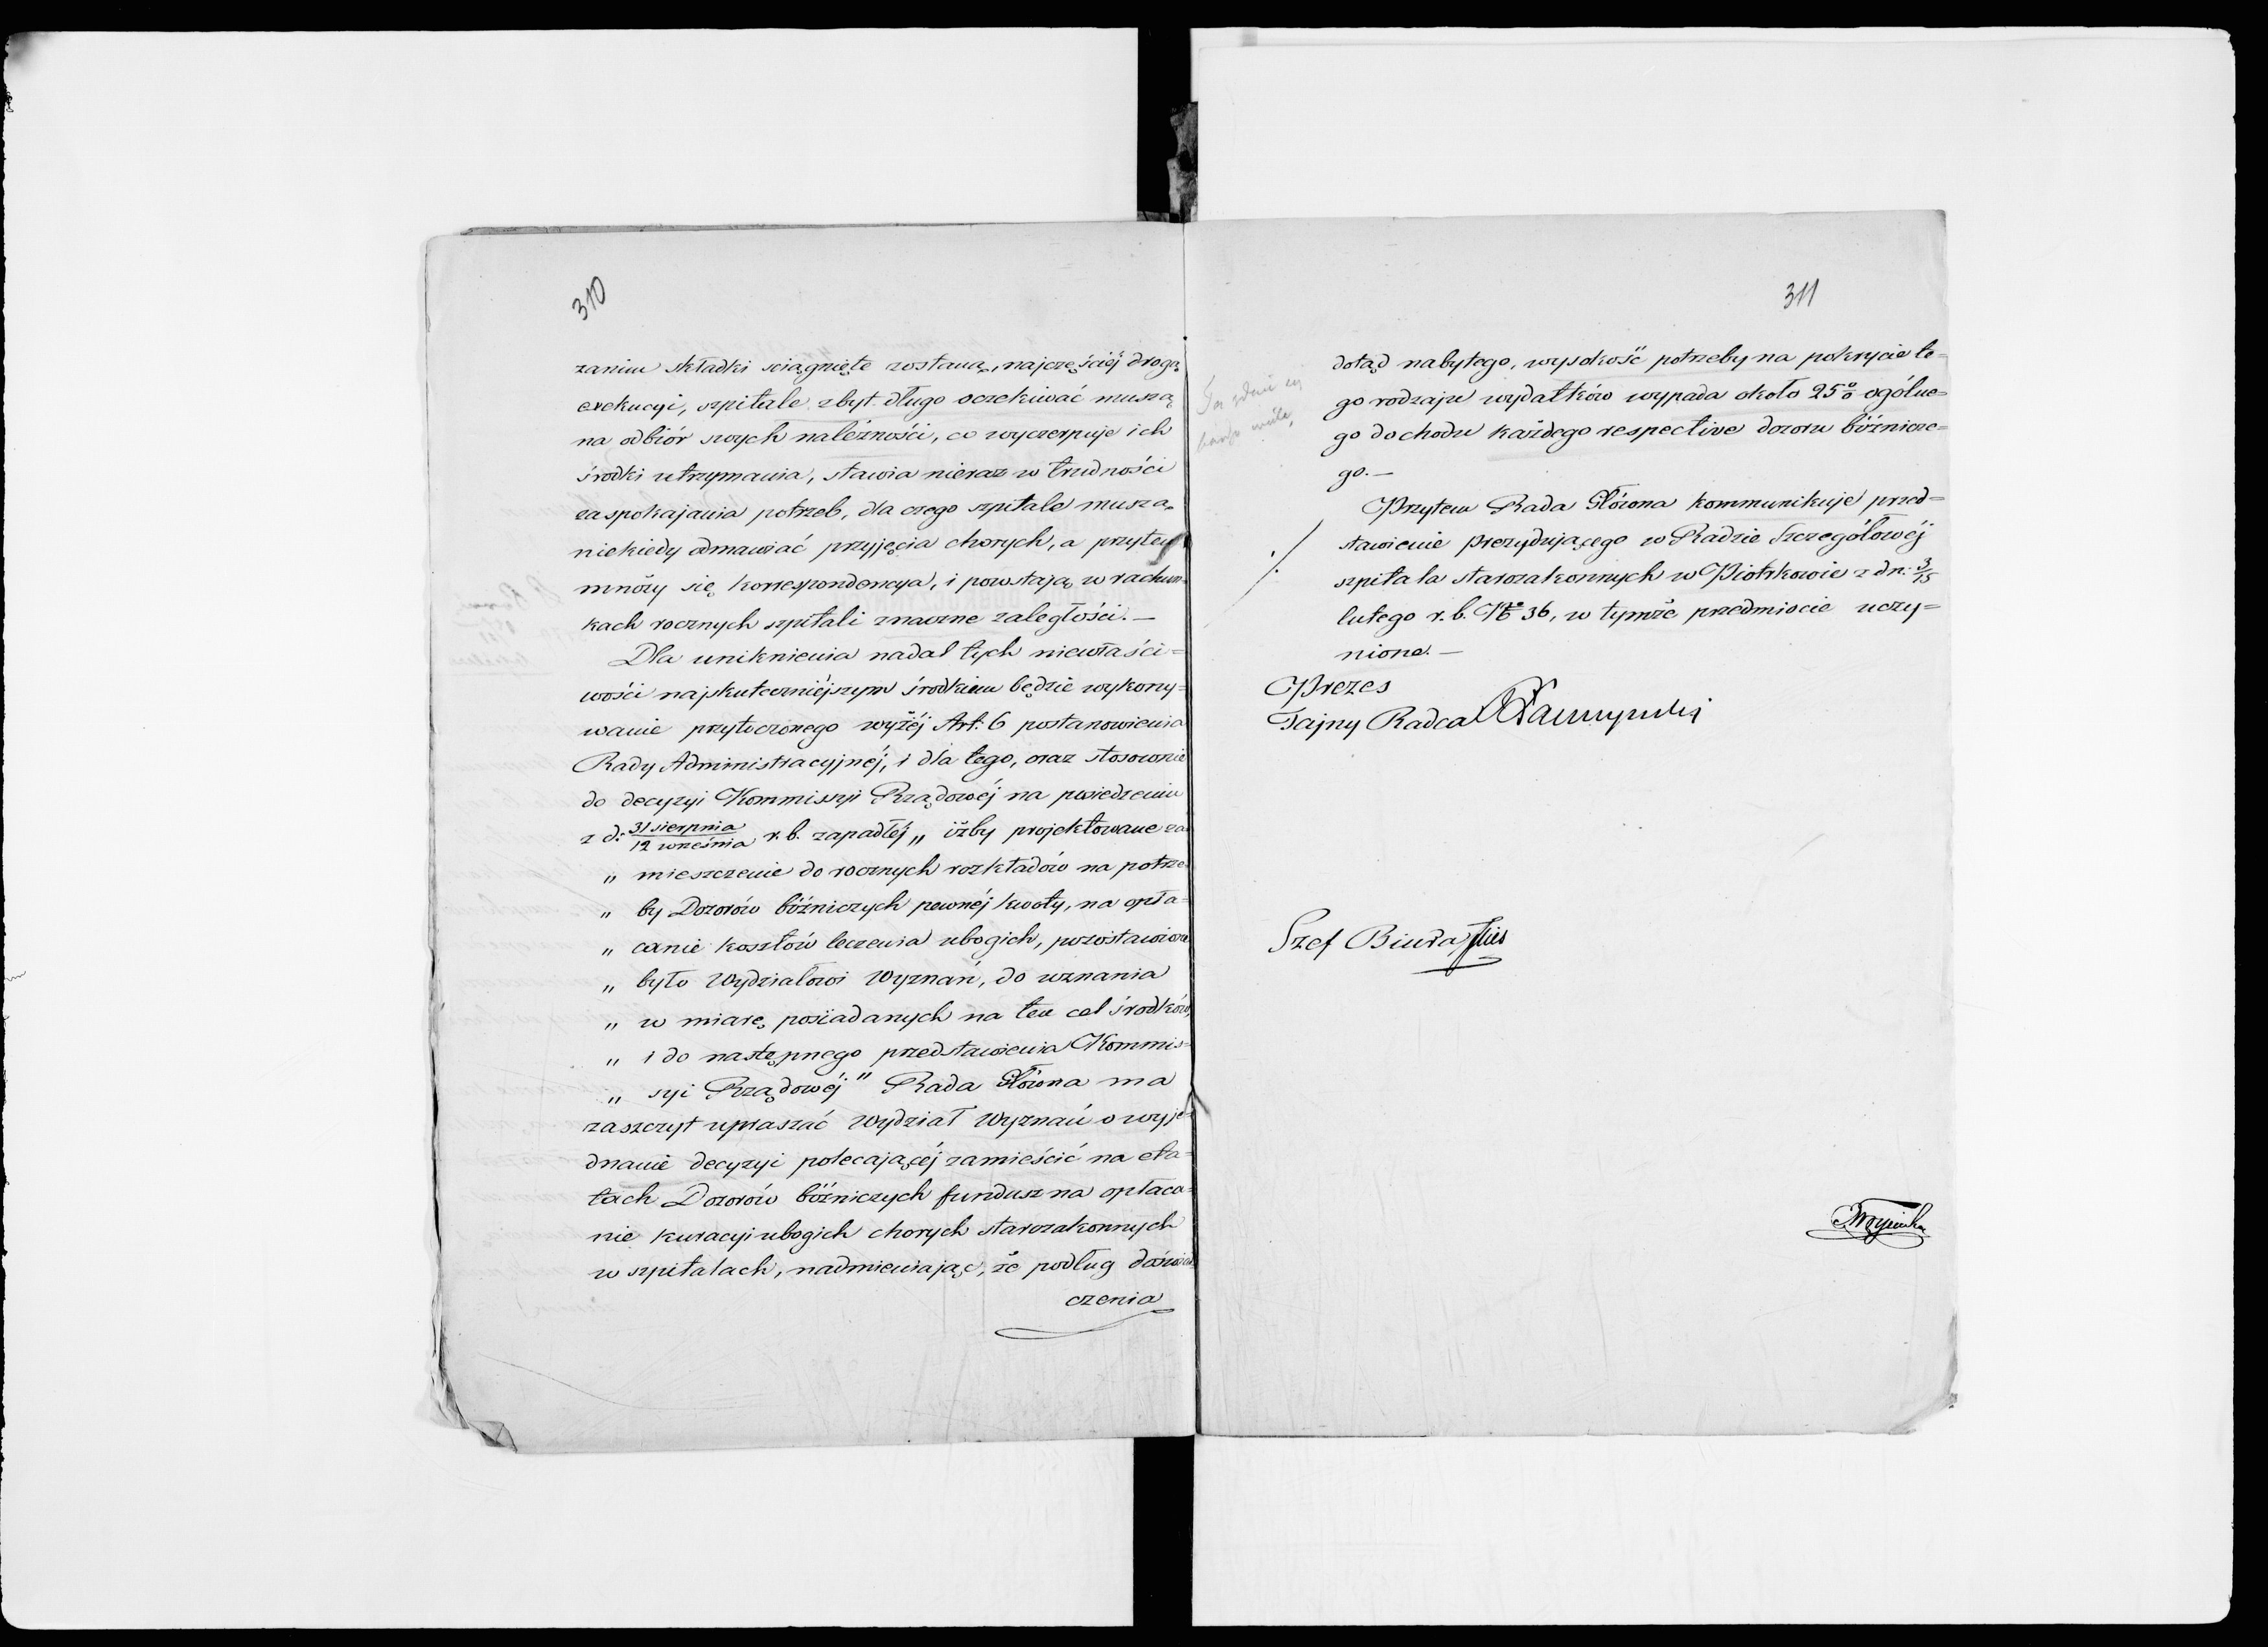 310
zanim składki ściągnięte zostaną, najczęściéj drogą
exekucyi, szpitale zbyt długo oczekiwać muszą
na odbiór swych należności, co wyczerpuje ich
środki utrzymania, stawia nieraz w trudności
zaspokajania potrzeb, dla czego szpitale muszą
niekiedy odmawiać przyjęcia chorych, a przytem
mnoży się korrespondencya, i powstają w rachun-
kach rocznych szpitali znaczne zaległości. —
Dla uniknienia nadal tych niewłaści=
wości najskuteczniéjszym środkiem będzie wykony=
wanie przytoczonego wyżéj Art: 6 postanowienia
Rady Administracyjnéj, i dla tego, oraz stosownie
do decyzyi Kommissyi Rządowéj na posiedzeniu
z d: 31 sierpnia / 12 września r. b. zapadłéj „ iżby projektowane za
„ mieszczenie do rocznych rozkładów na potrze-
„ by Dozorów bóżniczych pewnéj kwoty, na opła=
„ canie kosztów leczenia ubogich, pozostawione
„ było Wydziałowi Wyznań, do uznania
„ w miarę posiadanych na ten cel środków,
„ i do następnego przedstawienia Kommis=
„ syi Rządowéj" Rada Główna ma
zaszczyt upraszać Wydział Wyznań o wyje-
dnanie decyzyi polecającéj zamieścić na eta=
tach Dozorów bóżniczych fundusz na opłaca=
nie kuracyi ubogich chorych starozakonnych
w szpitalach, nadmieniając, że podług doświad
czenia
311
dotąd nabytego, wysokość potrzeby na pokrycie te=
go rodzaju wydatków wypada około 25% ogólne=
go dochodu każdego respective dozoru bóżnicze=
go. —
Przytem Rada Główna kommunikuje przed=
stawienie prezydującego w Radzie Szczegółowéj
szpitala starozakonnych w Piotrkowie z dn: 3/15
lutego r. b. No 36, w tymże przedmiocie uczy=
nione. —
Prezes
Tajny Radca
Szef Biura